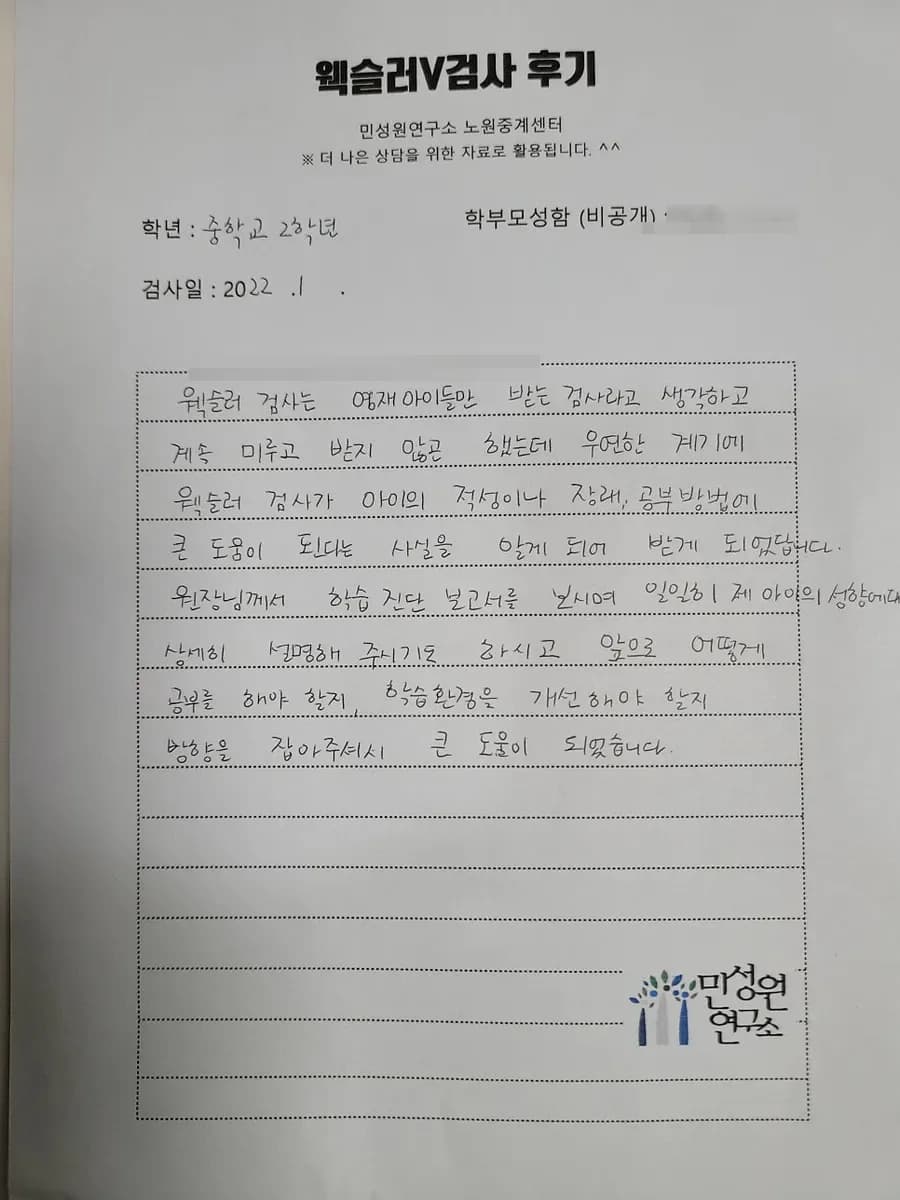 웩슬러V검사 후기
민성원연구소 노원중계센터
※ 더 나은 상담을 위한 자료로 활용됩니다. ^^
학년 : 중학교 2학년
학부모성함 (비공개) :
검사일 : 2022 .1 .
웩슬러 검사는 영재 아이들만 받는 검사라고 생각하고
계속 미루고 받지 않곤 했는데 우연한 계기에
웩슬러 검사가 아이의 적성이나 장래, 공부방법에
큰 도움이 된다는 사실을 알게 되어 받게 되었답니다.
원장님께서 학습 진단 보고서를 보시며 일일히 제 아이의 성향에대
상세히 설명해 주시기도 하시고 앞으로 어떻게
공부를 해야 할지, 학습환경을 개선해야 할지
방향을 잡아주셔서 큰 도움이 되었습니다.
민성원
연구소